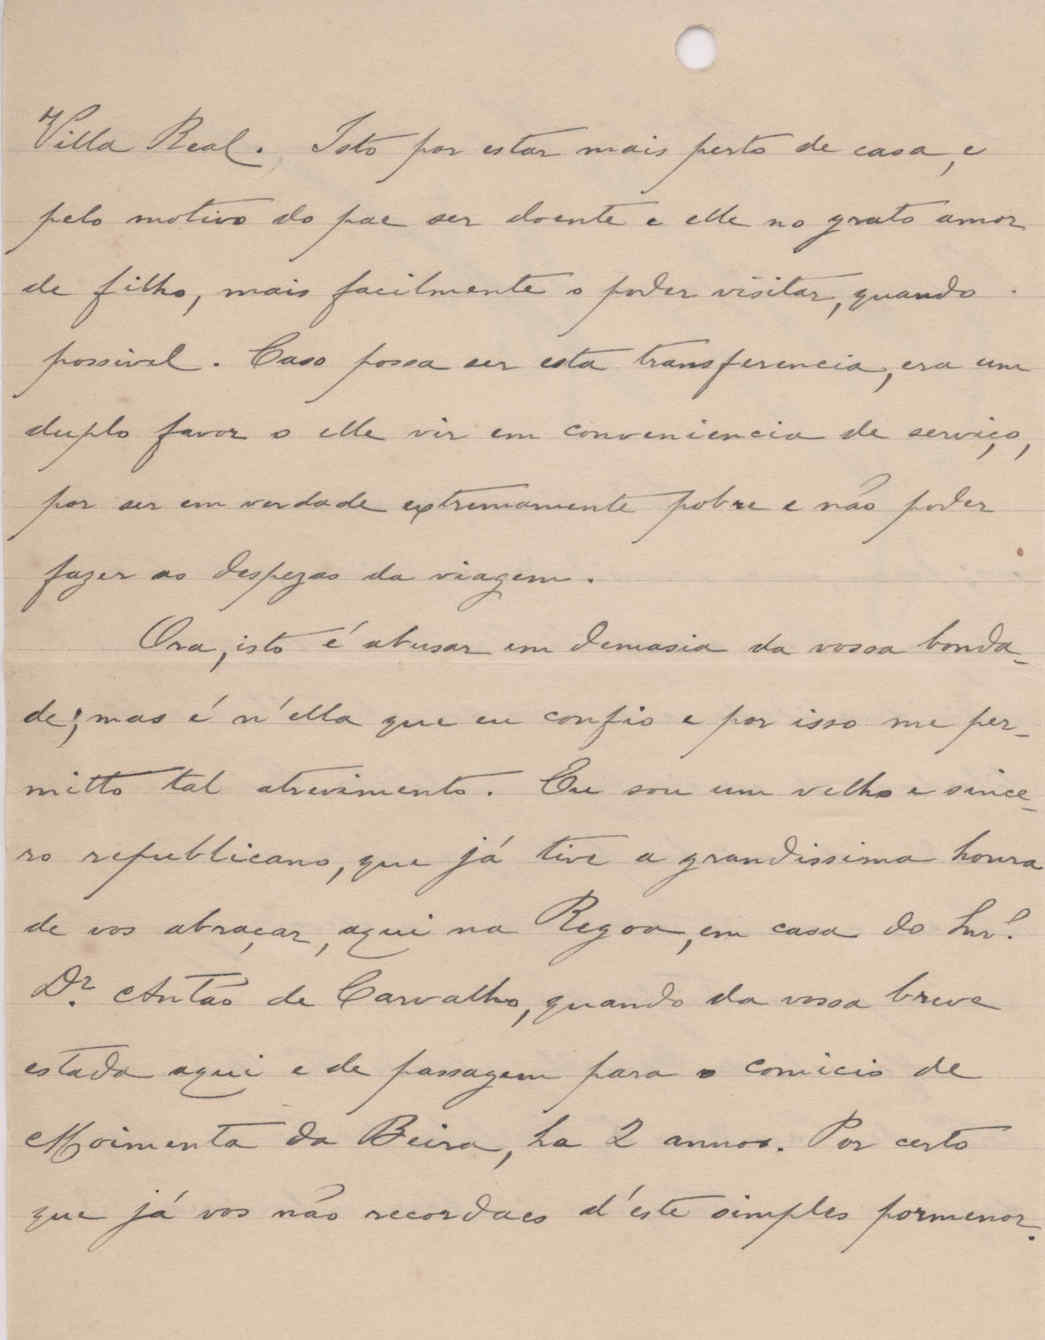 Villa Real. Isto por estar mais perto de casa, e
pelo motivo do pae ser doente e elle no grato amor
de filho, mais facilmente o poder visitar, quando
possivel. Caso possa ser esta transferencia, era um
duplo favor o elle vir em conveniencia de serviço,
por ser em verdade extremamente pobre e não poder
fazer as despezas da viagem.
Ora, isto é abusar em demasia da vossa bonda-
de; mas é n'ella que eu confio e por isso me per-
mitto tal atrevimento. Eu sou um velho e since-
ro republicano, que já tive a grandissima honra
de vos abraçar, aqui na Regoa, em casa do Snr.
Dr. Antão de Carvalho, quando da vossa breve
estada aqui e de passagem para o comicio de
Moimenta da Beira, ha 2 annos. Por certo
que já vos não recordaes d'éste simples pormenor.